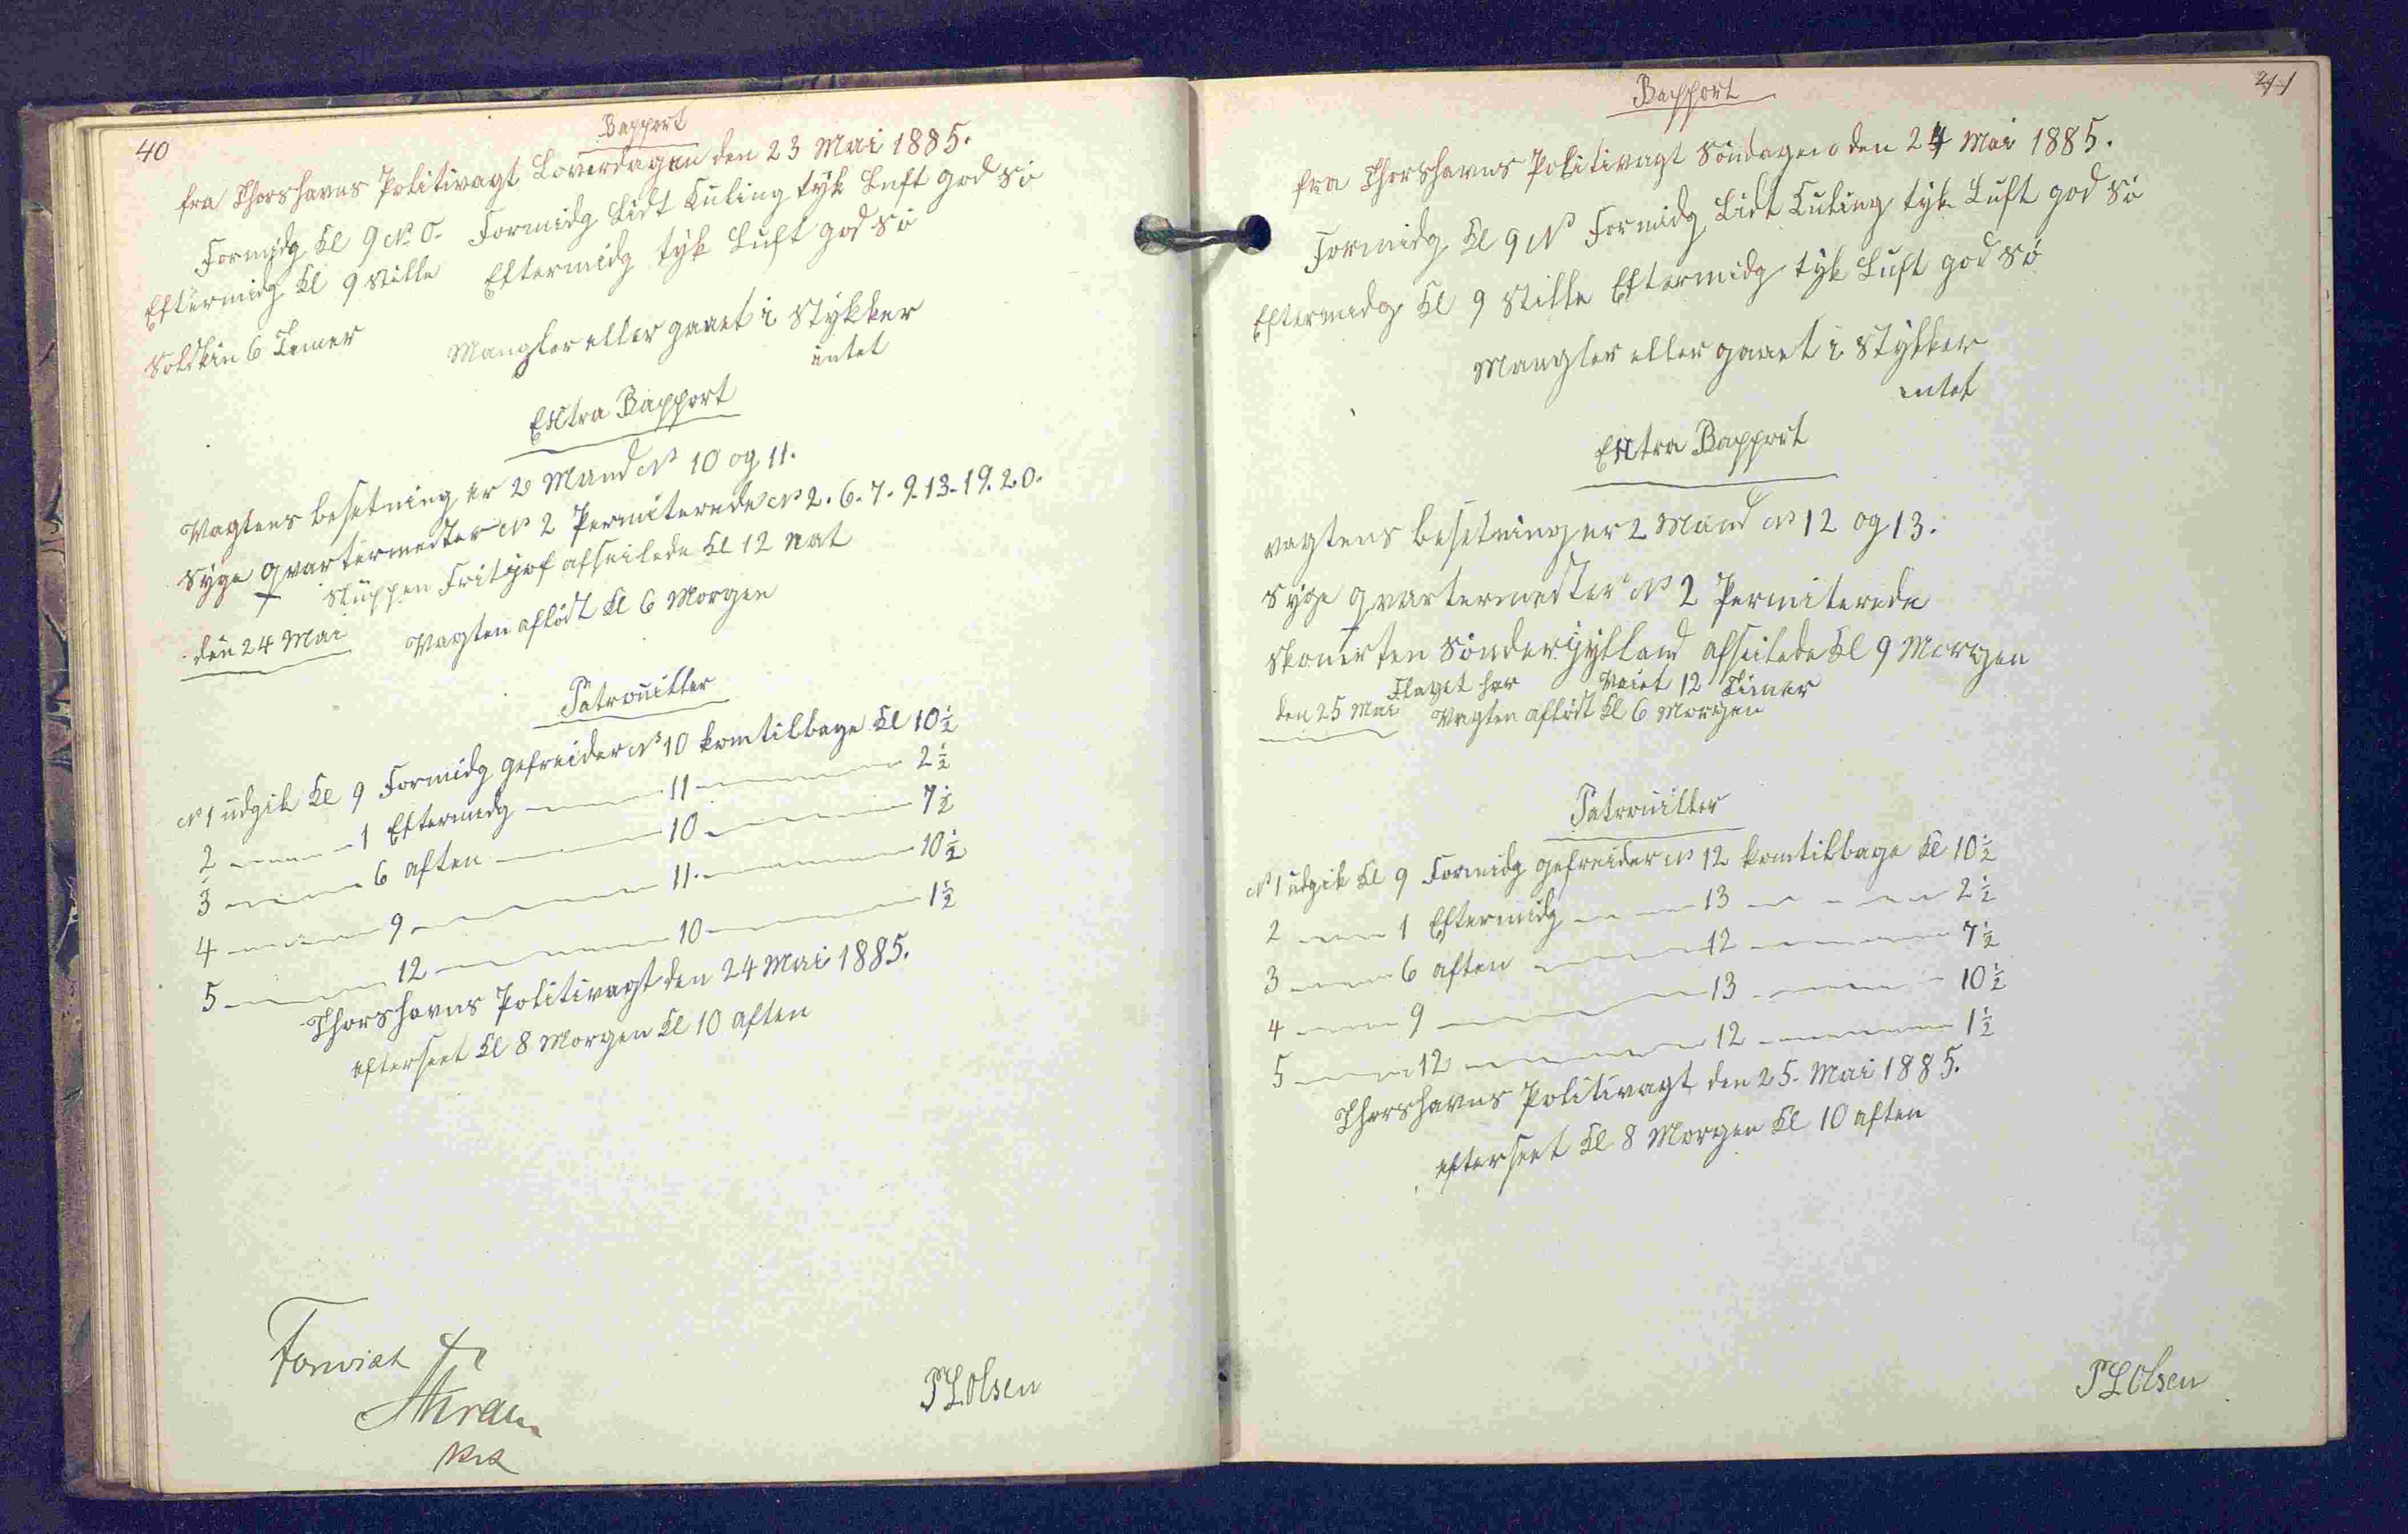 40
Rapport
fra Thorshavns Politivagt Loverdagen den 23 Mai 1885.
Formidg Kl 9 N. O. Formidg Lidt Kuling tyk Luft god Sö
Eftermidg Kl 9 Stille Eftermidg tyk Luft god Sö
Solskin 6 Timer Mangler eller gaaet i Stykker
intet
Extra Rapport
Vagtens besetning er 2 Mand No 10 og 11.
Syge qvartermester No 2 Permiterede No 2. 6. 7. 9. 13. 19. 20.
Sluppen Fritjof afseilede Kl 12 Nat
den 24 Mai Vagten aflöst Kl 6 Morgen
Patrouiller
No 1 udgik Kl 9 Formidg gefreider No 10 kom tilbage Kl 10½
2 — 1 Eftermidg — 11 — 2½
3 — 6 aften — 10 — 7½
4 — 9 — 11. — 10½
5 — 12 — 10 — 1½
Thorshavns Politivagt den 24 Mai 1885.
efterseet Kl 8 Morgen Kl 10 aften
PLOlsen
Rapport
41
fra Thorshavns Politivagt Söndagen den 24 Mai 1885.
Formidg Kl 9 N Formidg Lidt Kuling tyk Luft god Sö
Eftermidg Kl 9 Stille Eftermidg tyk Luft god Sö
Mangler eller gaaet i Stykker
intet
Extra Rapport
vagtens besetning er 2 Mand No 12 og 13.
Syge qvartermester No 2 Permiterede
Skonerten Sönderjylland afseilede Kl 9 Morgen
Flaget har Vaiet 12 Timer
den 25 Mai Vagten aflöst Kl 6 Morgen
Patrouiller
No 1 udgik Kl 9 Formidg gefreider No 12 kom tilbage Kl 10½
2 — 1 Eftermidg — 13 — 2½
3 — 6 aften — 12 — 7½
4 — 9 — 13 — 10½
5 — 12 — 12 — 1½
Thorshavns Politivagt den 25. Mai 1885.
efterseet Kl 8 Morgen Kl 10 aften
PLOlsen